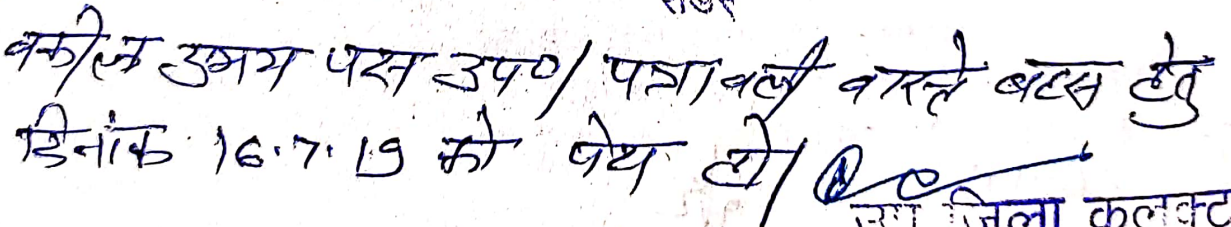 वकील उभय पक्ष उप०/ पत्रावली वास्ते बहस हेतु
दिनांक 16.7.19 को पेश हो/
जिला कलक्ट